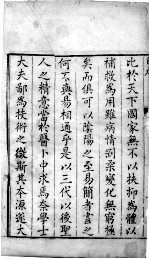 比於天下國家無不以扶抑為體以
補救為用雖病情別宗變化無窮操
矣而俱可以陰陽之至易簡者盡之
何不與易相通乎是以三代以後聖
人之精意當於醫中求焉奈學士
大夫鄙為技術之微斯其本源遂大